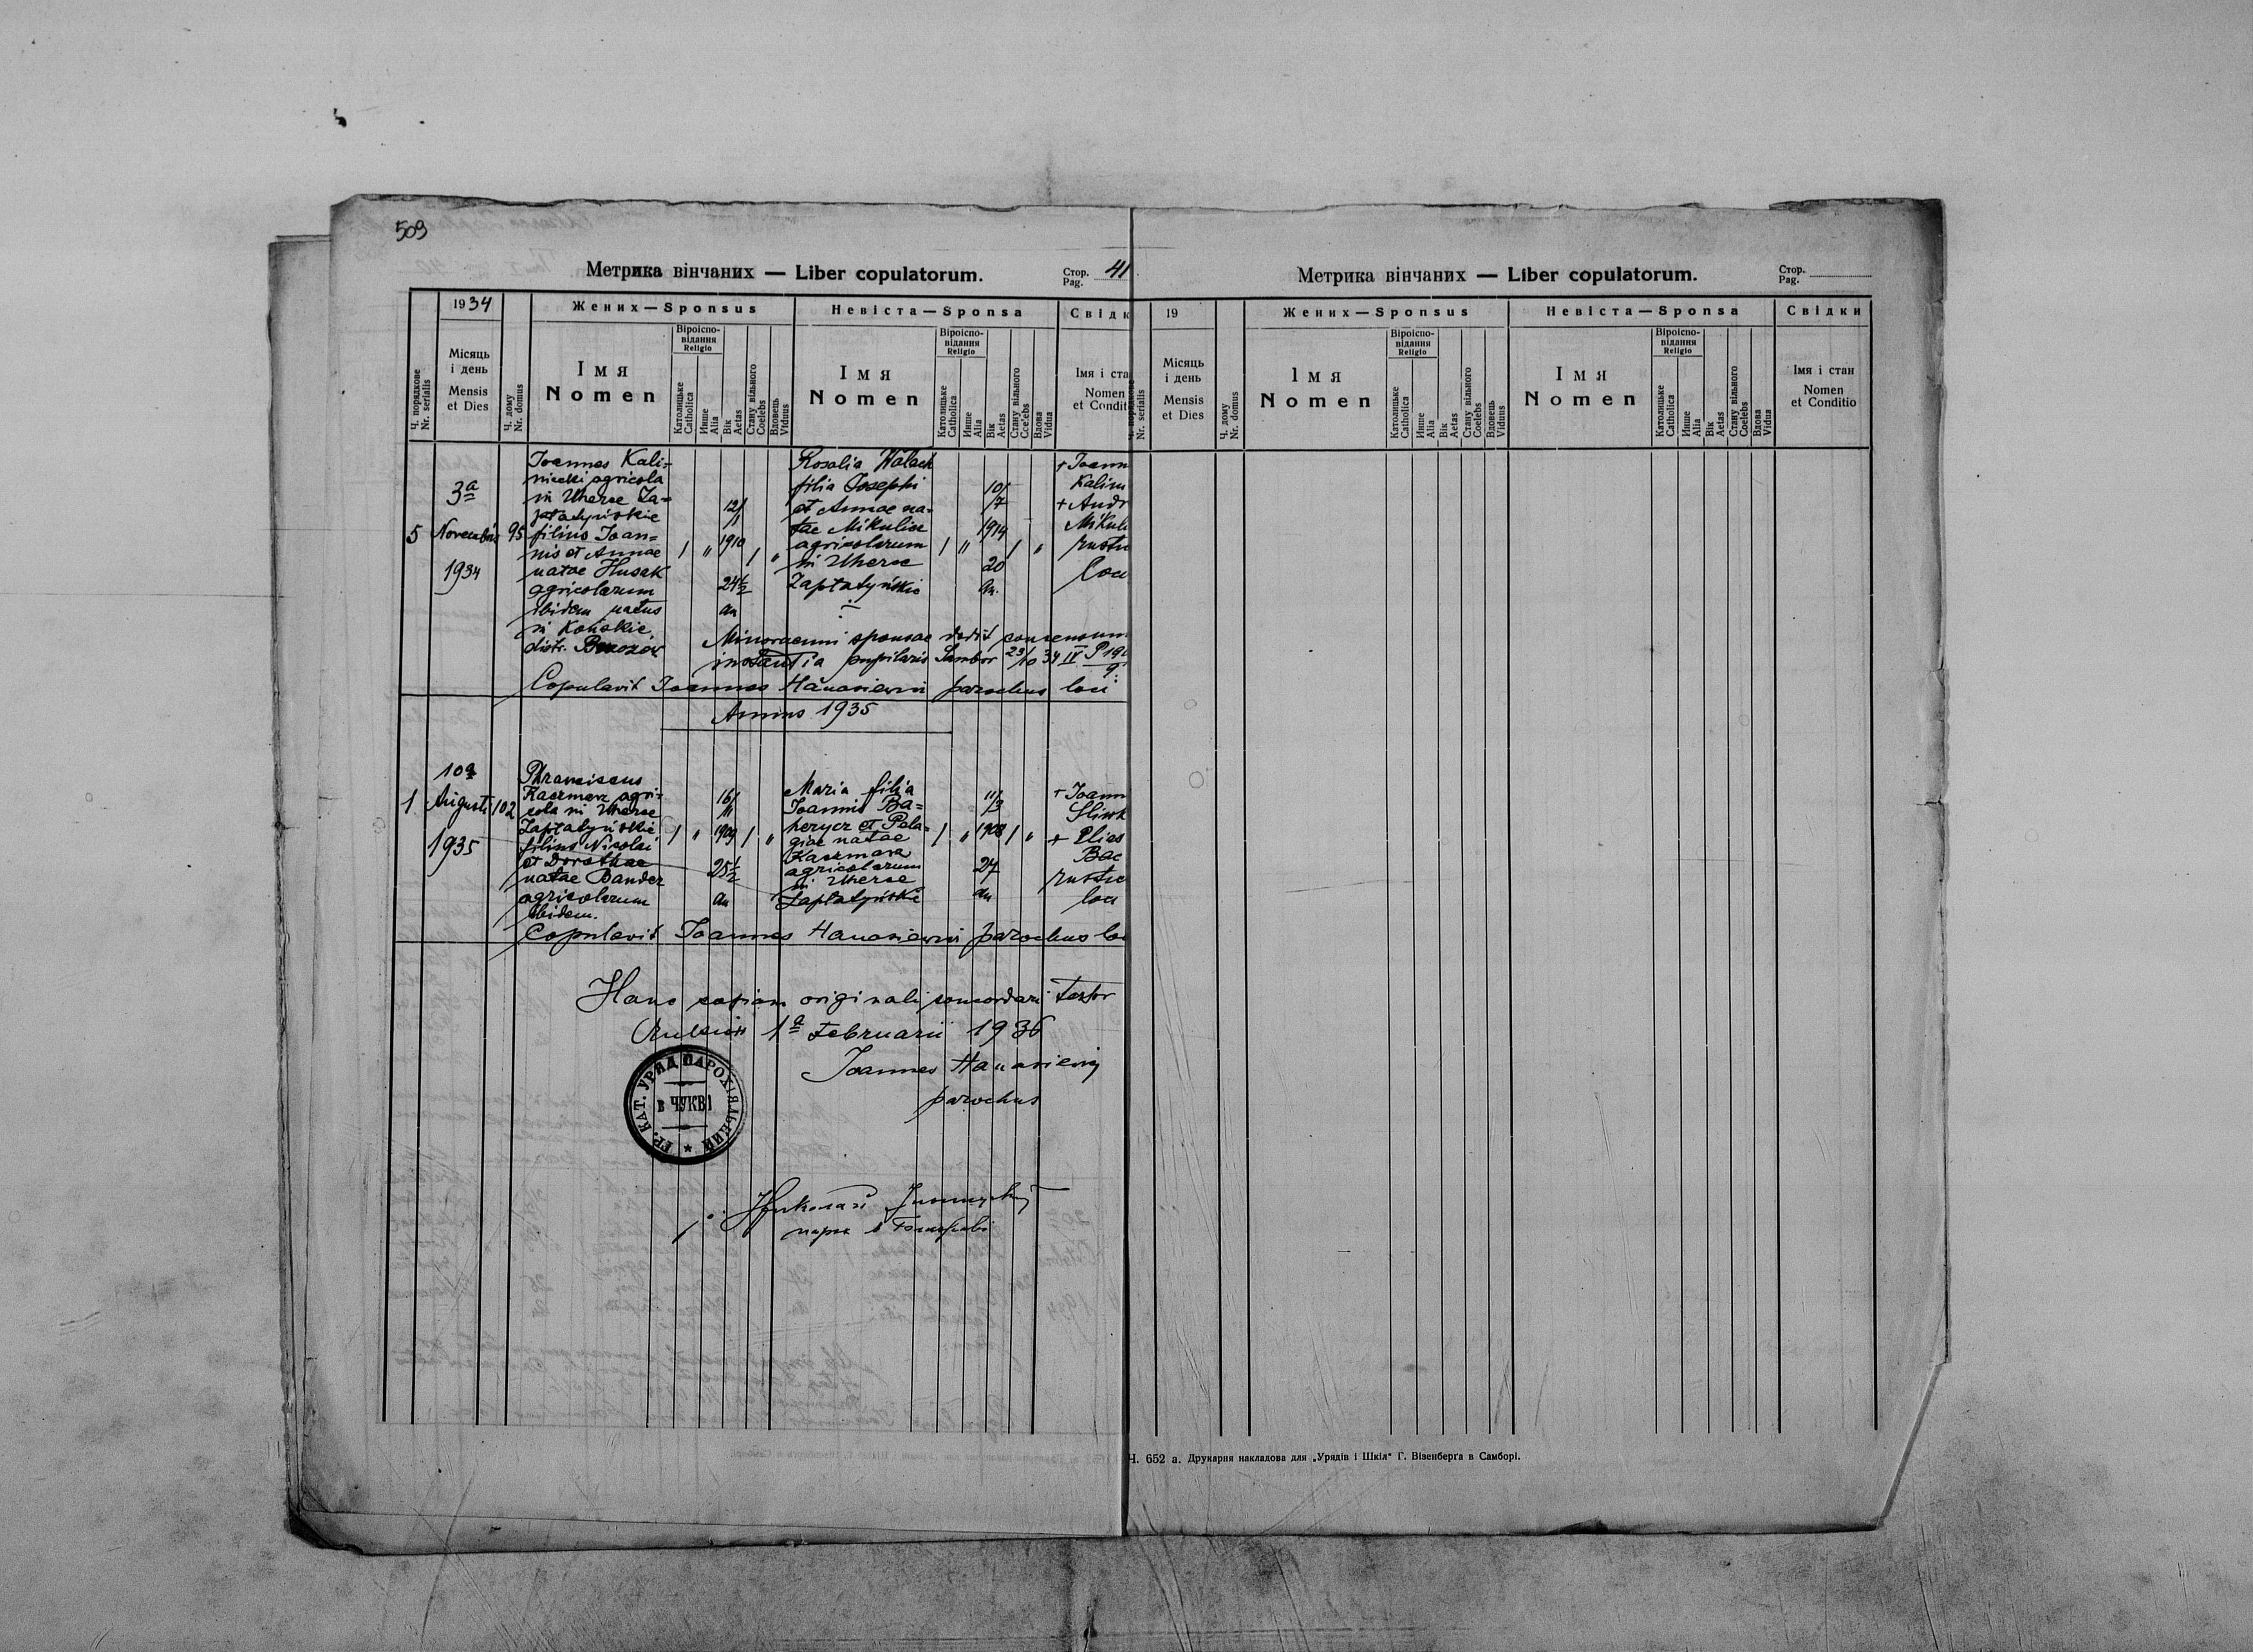 509
Метрика вінчаних — Liber copulatorum.
Стор. Pag. 41
Ч. порядкове Nr. serialis
1934
Місяць і день
Mensis et Dies
Ч. дому Nr. domus
Жених — Sponsus
Імя
Nomen
Віроіспо-
відання
Religio
Католицьке Catholica
Инше Alia
Вік Aetas
Стану вільного Coelebs
Вдовець Viduus
Невіста — Sponsa
Імя
Nomen
Віроіспо-
відання
Religio
Католицьке Catholica
Инше Alia
Вік Aetas
Стану вільного Coelebs
Вдова Vidua
Свідк
Імя і ста
Nomen
et Condit
5
3a
Novembris
1934
95
Joannes Kali=
niecki agricola
in Uherce Za=
płatyńskie
filius Joan=
nis et Annae
natae Husak
agricolarum
ibidem natus
in Końskie
distr. Brzozów
1 "
12/1
1910
24½
an
1 "
Rosalia Wałach
filia Josephi
et Annae na=
tae Mikulicz
agricolarum
in Uherce
Zapłatyńskie
1 "
10/7
1914
20
an.
1 "
+ Joann
Kalin
+ Andr
Mikul
rustic
loci
Minorenni sponsae dedit consensum
instantia pupilaris Sambor 23/10 34 IV P 19
Copulavit Joannes Hanasiewicz parochus loci
Annus 1935
1
10a
Augusti
1935
102
Phranciscus
Kaczmar agri=
cola in Uherce
Zapłatyńskie
filius Nicolai
et Dorotheae
natae Bander
agricolarum
ibidem.
1 "
16/
1909
25½
an
1 "
Maria filia
Joannis Ba=
herycz et Pela=
giae natae
Kaczmara
agricolarum
in Uherce
Zapłatyńskie
1 "
11/3
1908
27
an
1 "
+ Joann
Sliwk
+ Elias
Bac
rustic
loci
Copulavit Joannes Hanasiewicz parochus loc
Hanc copiam originali concordari testor
1a Februarii 1936
Joannes Hanasiewicz
parochus
ГР. КАТ. УРЯД ПАРОХІЯЛЬНИЙ
В ЧУКВІ
Метрика вінчаних — Liber copulatorum.
Стор. Pag.
Nr. serialis
19
Місяць і день
Mensis et Dies
Ч. дому Nr. domus
Жених — Sponsus
Імя
Nomen
Віроіспо-
відання
Religio
Католицьке Catholica
Инше Alia
Вік Aetas
Стану вільного Coelebs
Вдовець Viduus
Невіста — Sponsa
Імя
Nomen
Віроіспо-
відання
Religio
Католицьке Catholica
Инше Alia
Вік Aetas
Стану вільного Coelebs
Вдова Vidua
Свідки
Імя і стан
Nomen
et Conditio
Ч. 652 а. Друкарня накладова для „Урядів і Шкіл" Г. Візенберґа в Самборі.